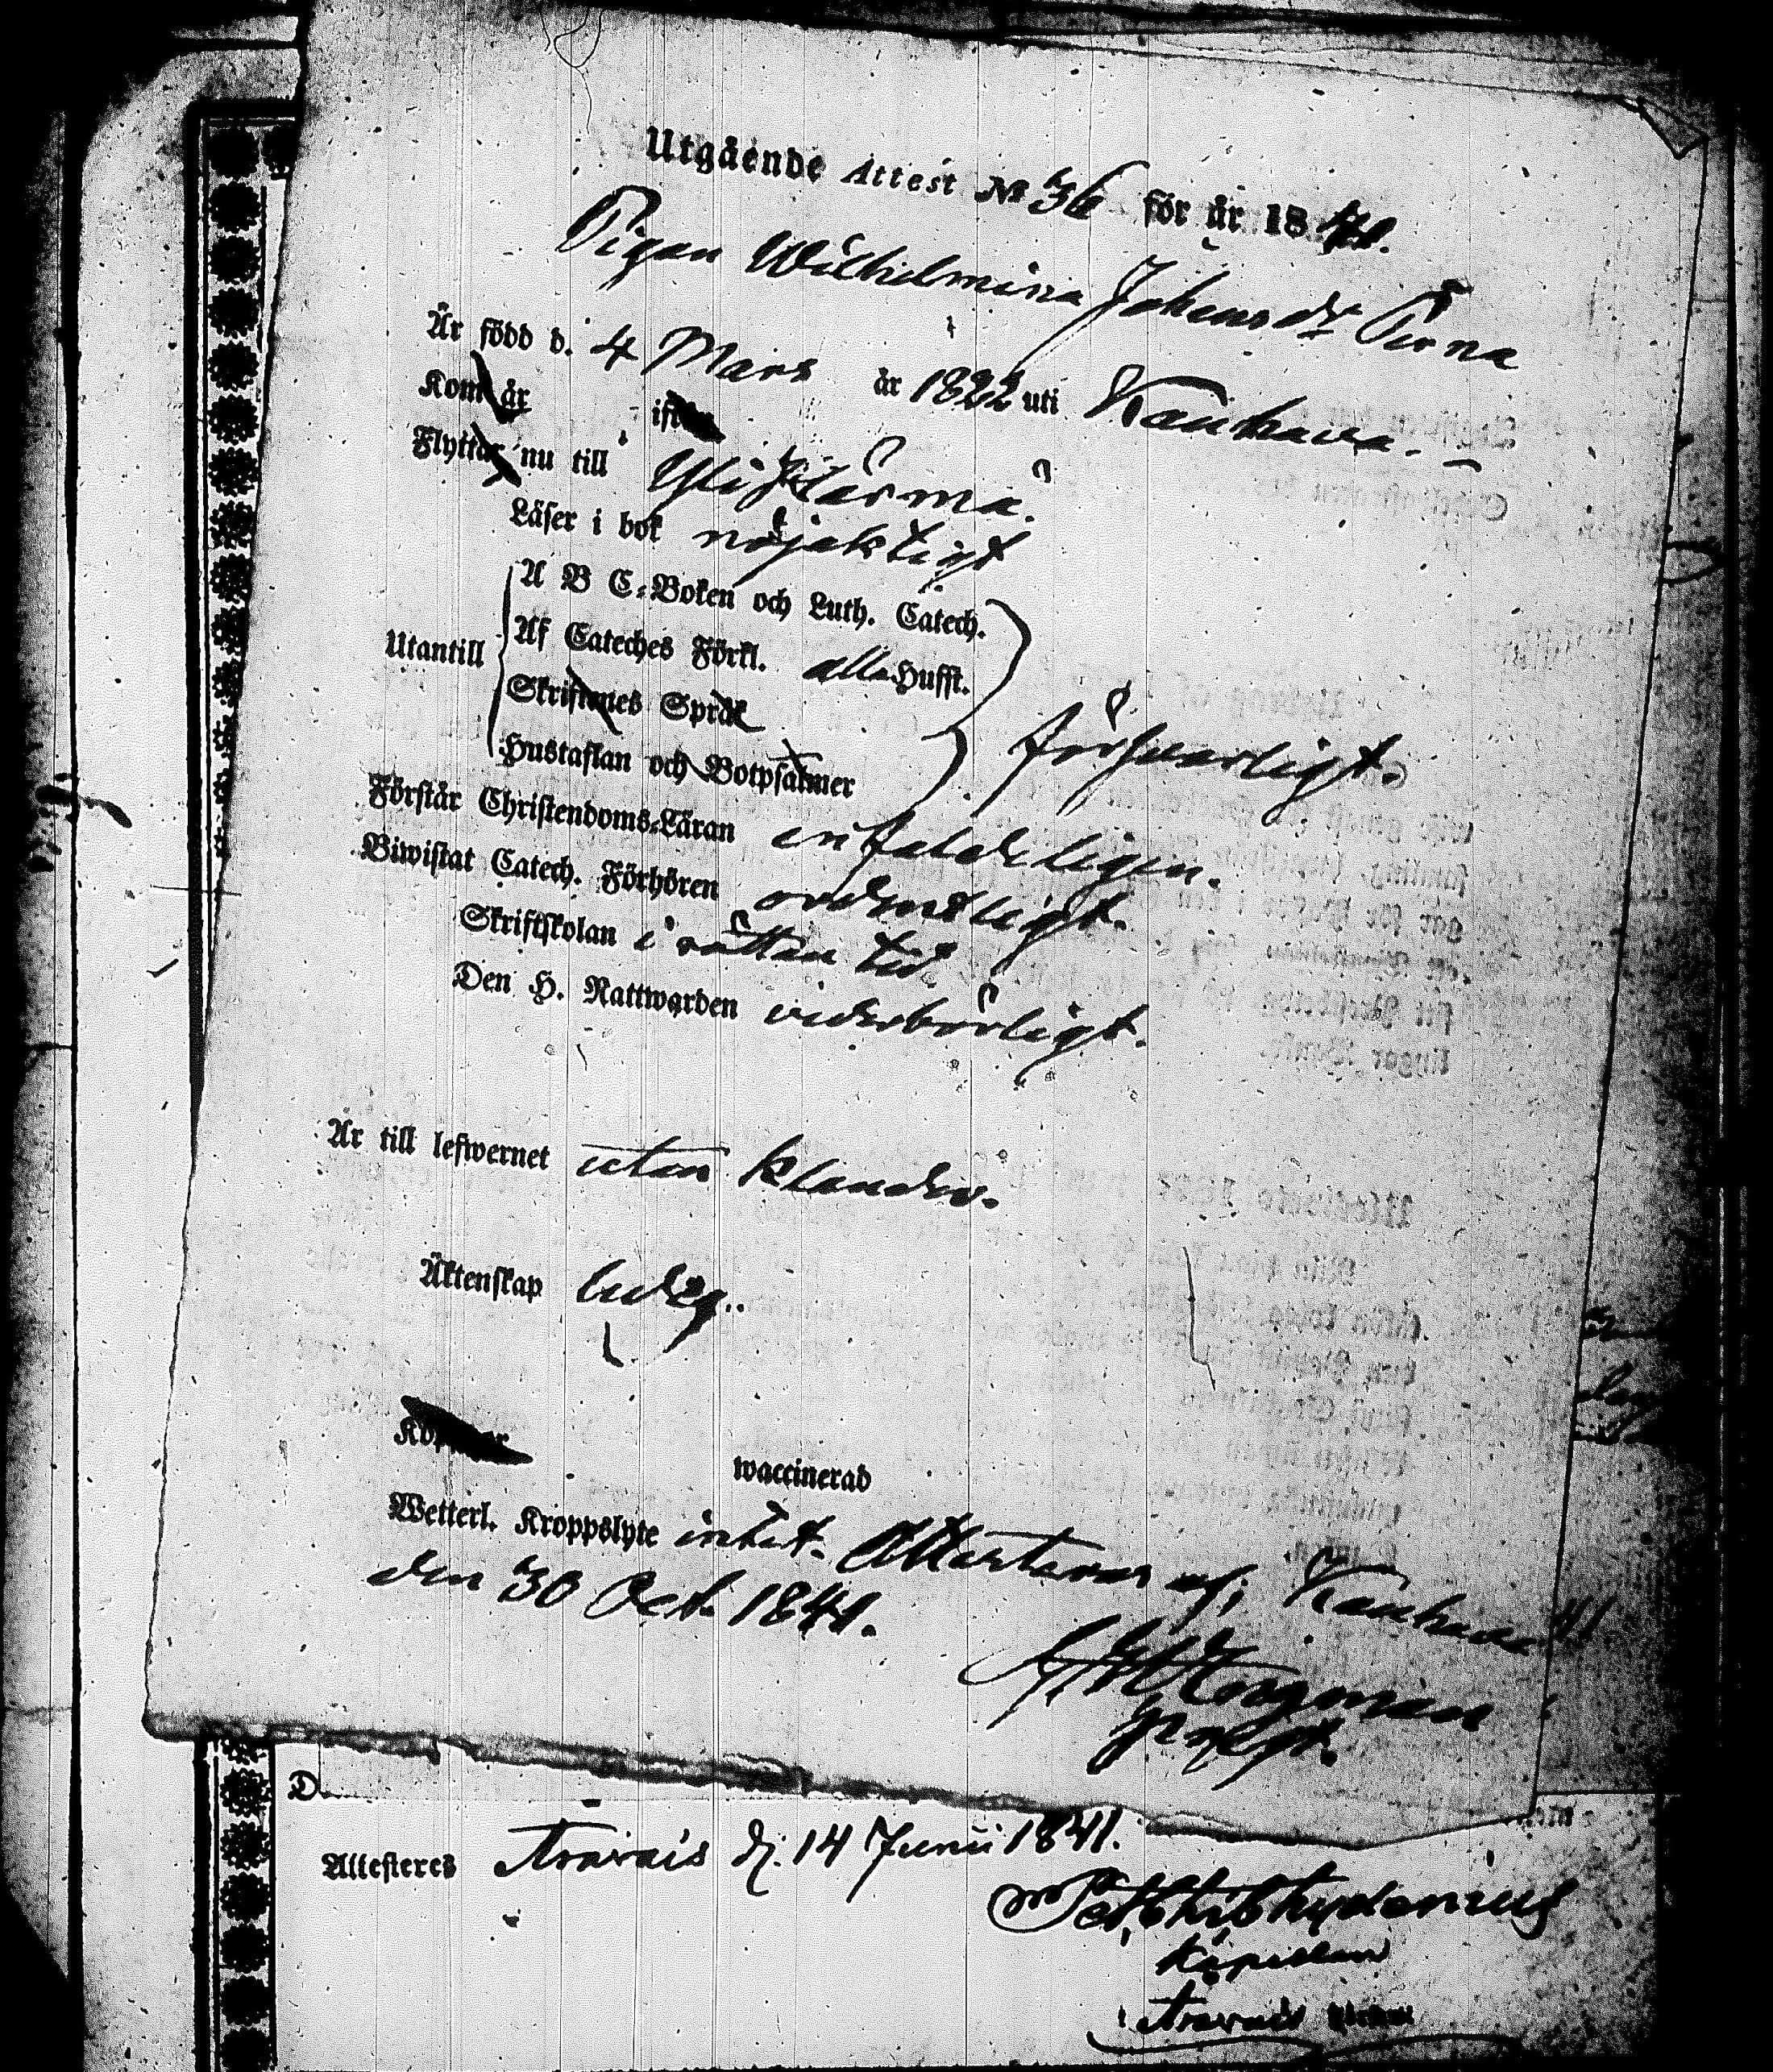 Utgående Attest № 36 för år 1841.
Pigan Wilhelmina Johansdr Pirna
Är född d. 4 Mars år 1822 uti Kauhava.
Kom år ifrån
Flyttar nu till Yli Härmä.
Läser i bok nöjaktigt
Utantill
A B C-Boken och Luth. Catech.
Af Cateches Förkl. alla Hufst.
Skriftenes Språk
Hustaflan och Botpsalmer
försvarligt.
Förstår Christendoms-Läran enfaldeligen.
Biwistat Catech. Förhören ordentligt.
Skriftskolan i rättan tid
Den H. Nattwarden vederbörligt.
Är till lefwernet utan klander.
Äktenskap ledig.
Koppor
waccinerad
Wetterl. Kroppslyte intet. Attesteras af, Kauhava
den 30 Oct. 1841.
Krogman
D.
Attesteres Oravais d. 14 Junii 1841.
Chydenius
Kapellan
Oravais